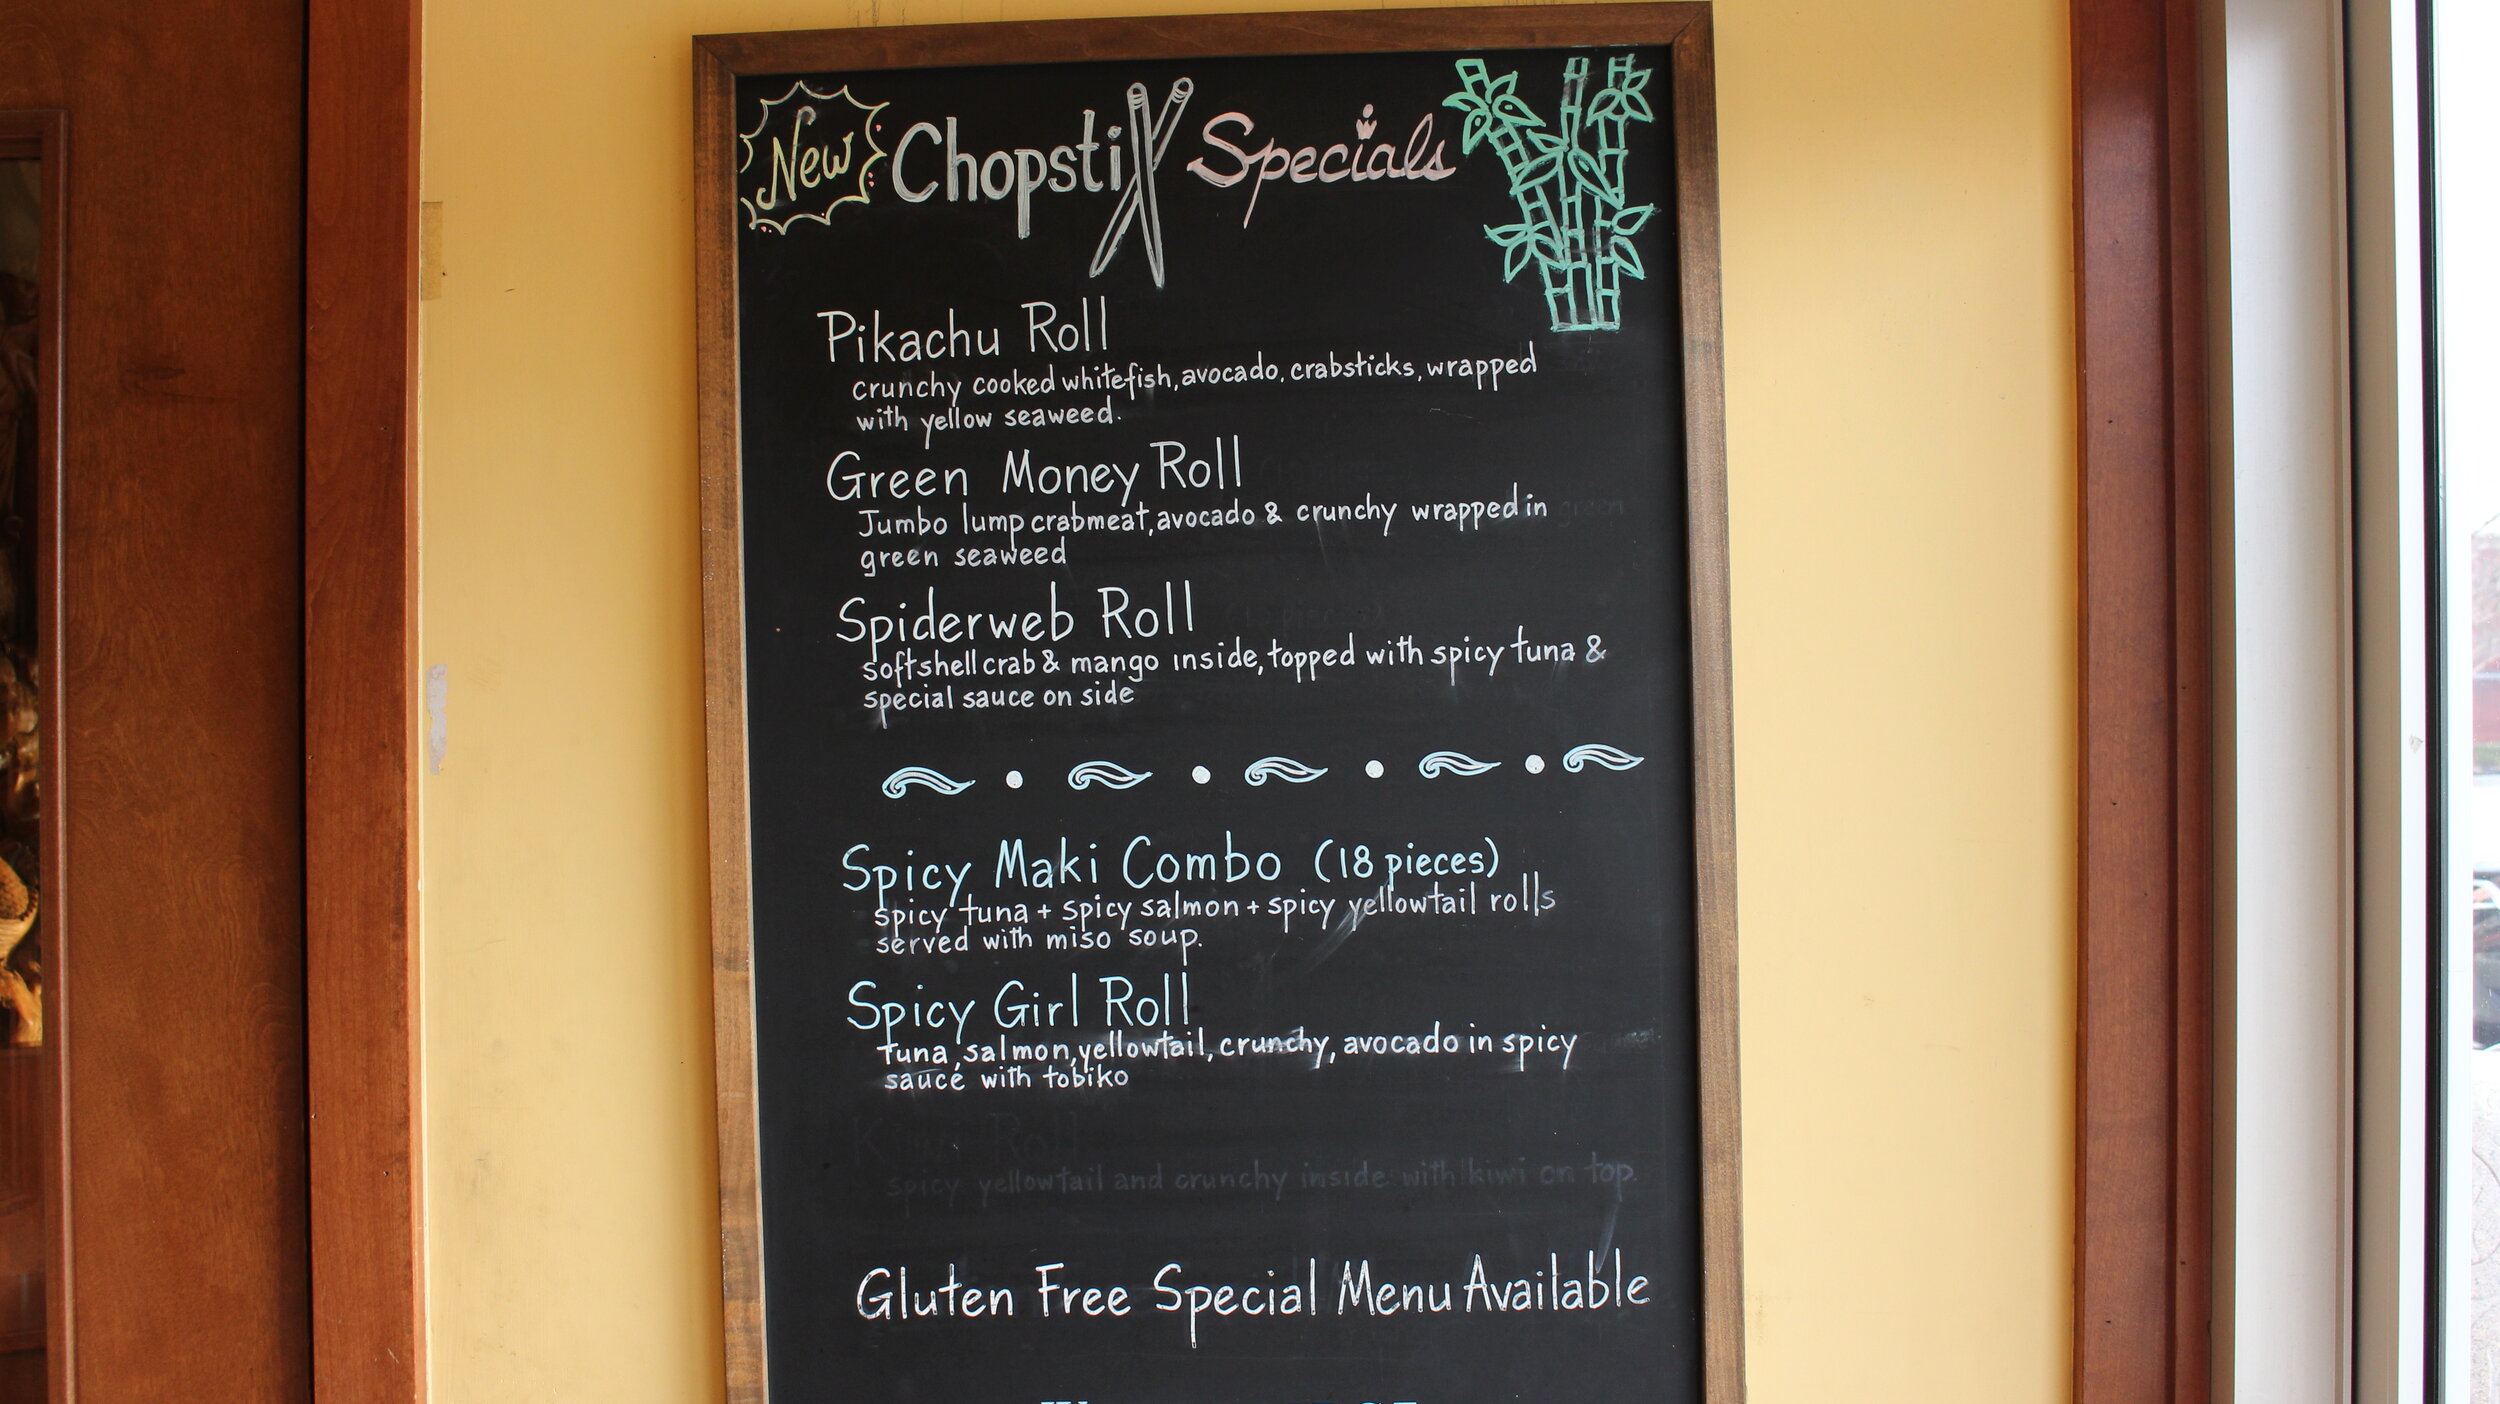 New Chopstix Specials
Pikachu Roll
crunchy cooked whitefish, avocado, crabsticks, wrapped
with yellow seaweed.
Green Money Roll
Jumbo lump crabmeat, avocado & crunchy wrapped in green
green seaweed
Spiderweb Roll
softshell crab & mango inside, topped with spicy tuna &
special sauce on side
Spicy Maki Combo (18 pieces)
spicy tuna + spicy salmon + spicy yellowtail rolls
served with miso soup.
Spicy Girl Roll
tuna, salmon, yellowtail, crunchy, avocado in spicy
sauce with tobiko
Roll
spicy yellowtail and crunchy inside with kiwi on top.
Gluten Free Special Menu Available